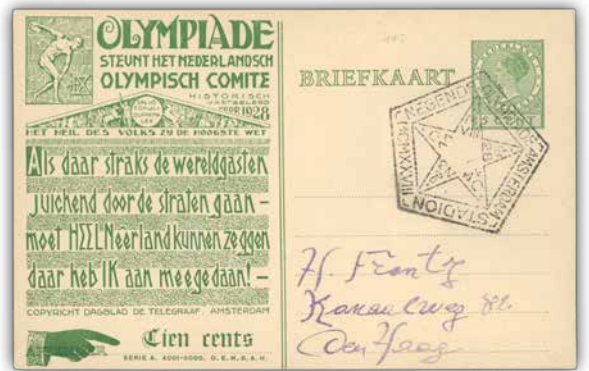 OLYMPIADE
STEUNT HET NEDERLANDSCH
OLYMPISCH COMITE
HISTORISCH
VASTGELEGD
1928
HET HEIL DES VOLKS ZY DE HOOGSTE WET
Als daar straks de wereldgasten
juichend door de straten gaan –
moet HEEL Neerland kunnen zeggen
daar heb IK aan meegedaan! –
COPYRIGHT DAGBLAD DE TELEGRAAF. AMSTERDAM
Tien cents
SERIE A. 4001-5000. D.E.N.B.A.H.
BRIEFKAART
5 CENT
NEGENDE OLYMPIADE
AMSTERDAM
STADION
MCMXXVIII
H. Frantz
Kanaalweg 82
Den Haag